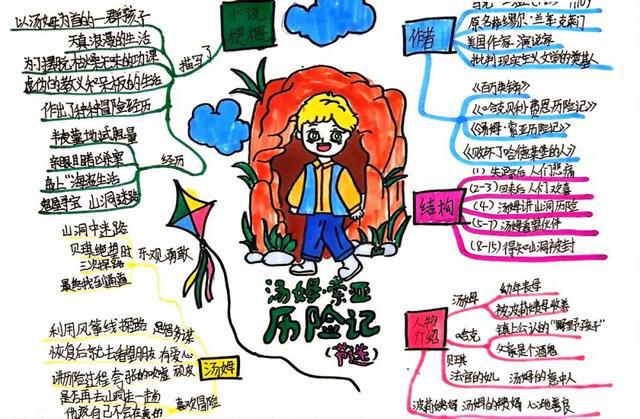 小说
梗概
描写了
以汤姆为首的一群孩子
天真浪漫的生活
为了摆脱枯燥无味的功课
虚伪的教义和呆板的生活
作出了种种冒险经历
经历
半夜墓地试胆量
亲眼目睹凶杀案
岛上"海盗生活"
鬼屋寻宝 山洞迷路
作者
美国作家 演说家
批判现实主义文学的奠基人
《百万英镑》
《哈克贝利·费恩历险记》
《汤姆·索亚历险记》
《败坏了哈德莱堡的人》
结构
(1) 失踪后 人们悲痛
(2-3) 回来后 人们欢喜
(4) 汤姆讲山洞历险
(5-7) 汤姆看望伙伴
(8-15) 得知山洞被封
汤姆·索亚
历险记
(节选)
汤姆
乐观 勇敢
山洞中迷路
贝琪绝望时
三次探路
最终找到通道
利用风筝线探路 足智多谋
恢复后就去看望朋友 有爱心
讲历险过程 夸张的吹嘘 顽皮
喜欢冒险
人物
介绍
汤姆
幼年丧母
被波莉姨母收养
哈克
镇上公认的"野孩子"
父亲是个酒鬼
贝琪
法官的女儿 汤姆的意中人
波莉姨妈 汤姆的姨妈 心地善良